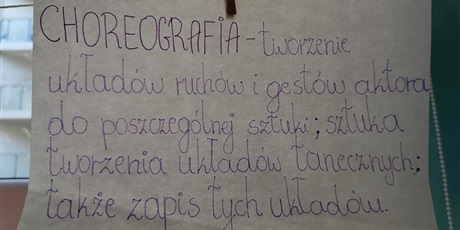 CHOREOGRAFIA - tworzenie
układów ruchów i gestów aktora
do poszczególnej sztuki; sztuka
tworzenia układów tanecznych;
także zapis tych układów.